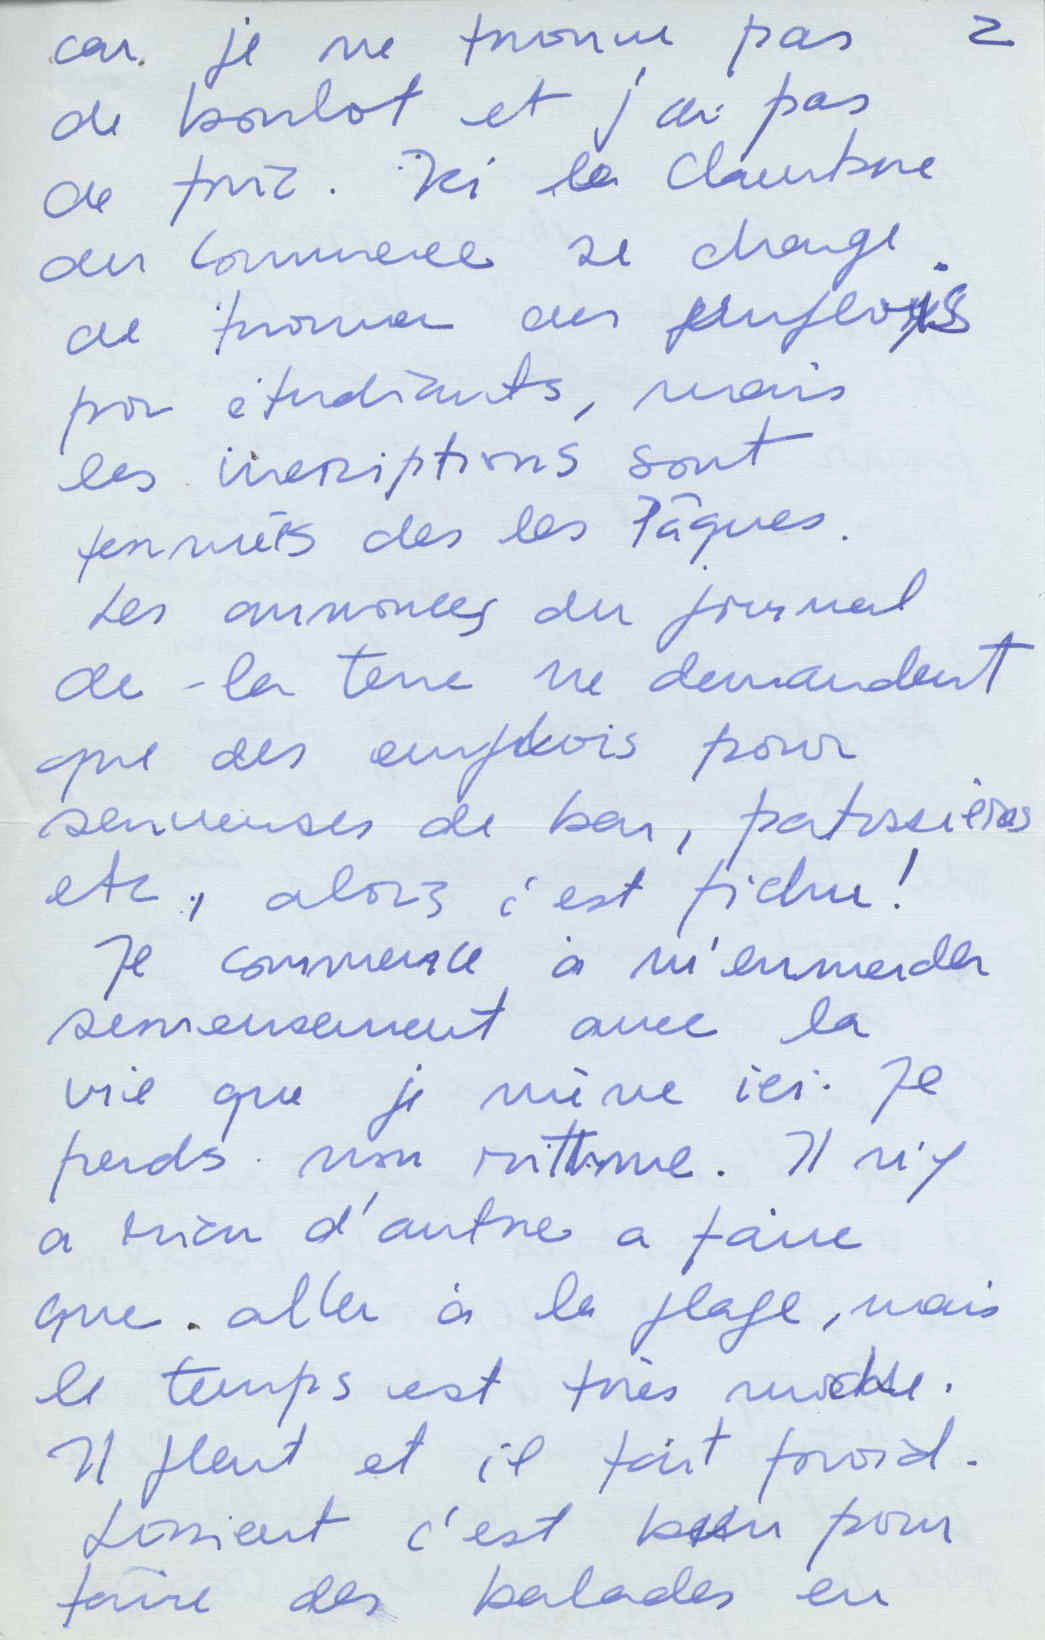 car je ne trouve pas 2
de boulot et j'ai pas
de fric. Ici la Chambre
du Commerce se charge
de trouver des emplois
pour étudiants, mais
les inscriptions sont
fermées des les Pâques.
Les annonces du journal
de la terre ne demandent
que des emplois pour
serveuses de bar, patissières
etc, alors c'est fichu!
Je commence à m'enmerder
serieusement avec la
vie que je mène ici. Je
perds mon rithme. Il n'y
a rien d'autre a faire
que aller à la plage, mais
le temps est très moche.
Il pleut et il fait froid.
Lorient c'est bien pour
faire des balades en